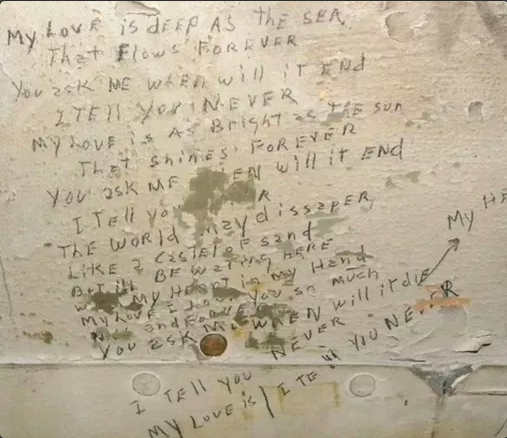 My LOVE is dEEP AS the SEA
That Flows FOREVER
You ask ME when will it END
I TELL YOU NEVER
My LOVE is AS Bright as THE sun
That shines FOREVER
You ask ME EN will it END
I Tell yo R
THE WORLD may dissaper
Like a Castel of sand
But i'll BE waiting HERE
With My Heart in my Hand
My LOVE I LOVE You so much
Now and Forever
You ask ME WHEN will it diE
My HE
NEVER
I TELL YOU
I TEll YOU NEVER
My LOVE is